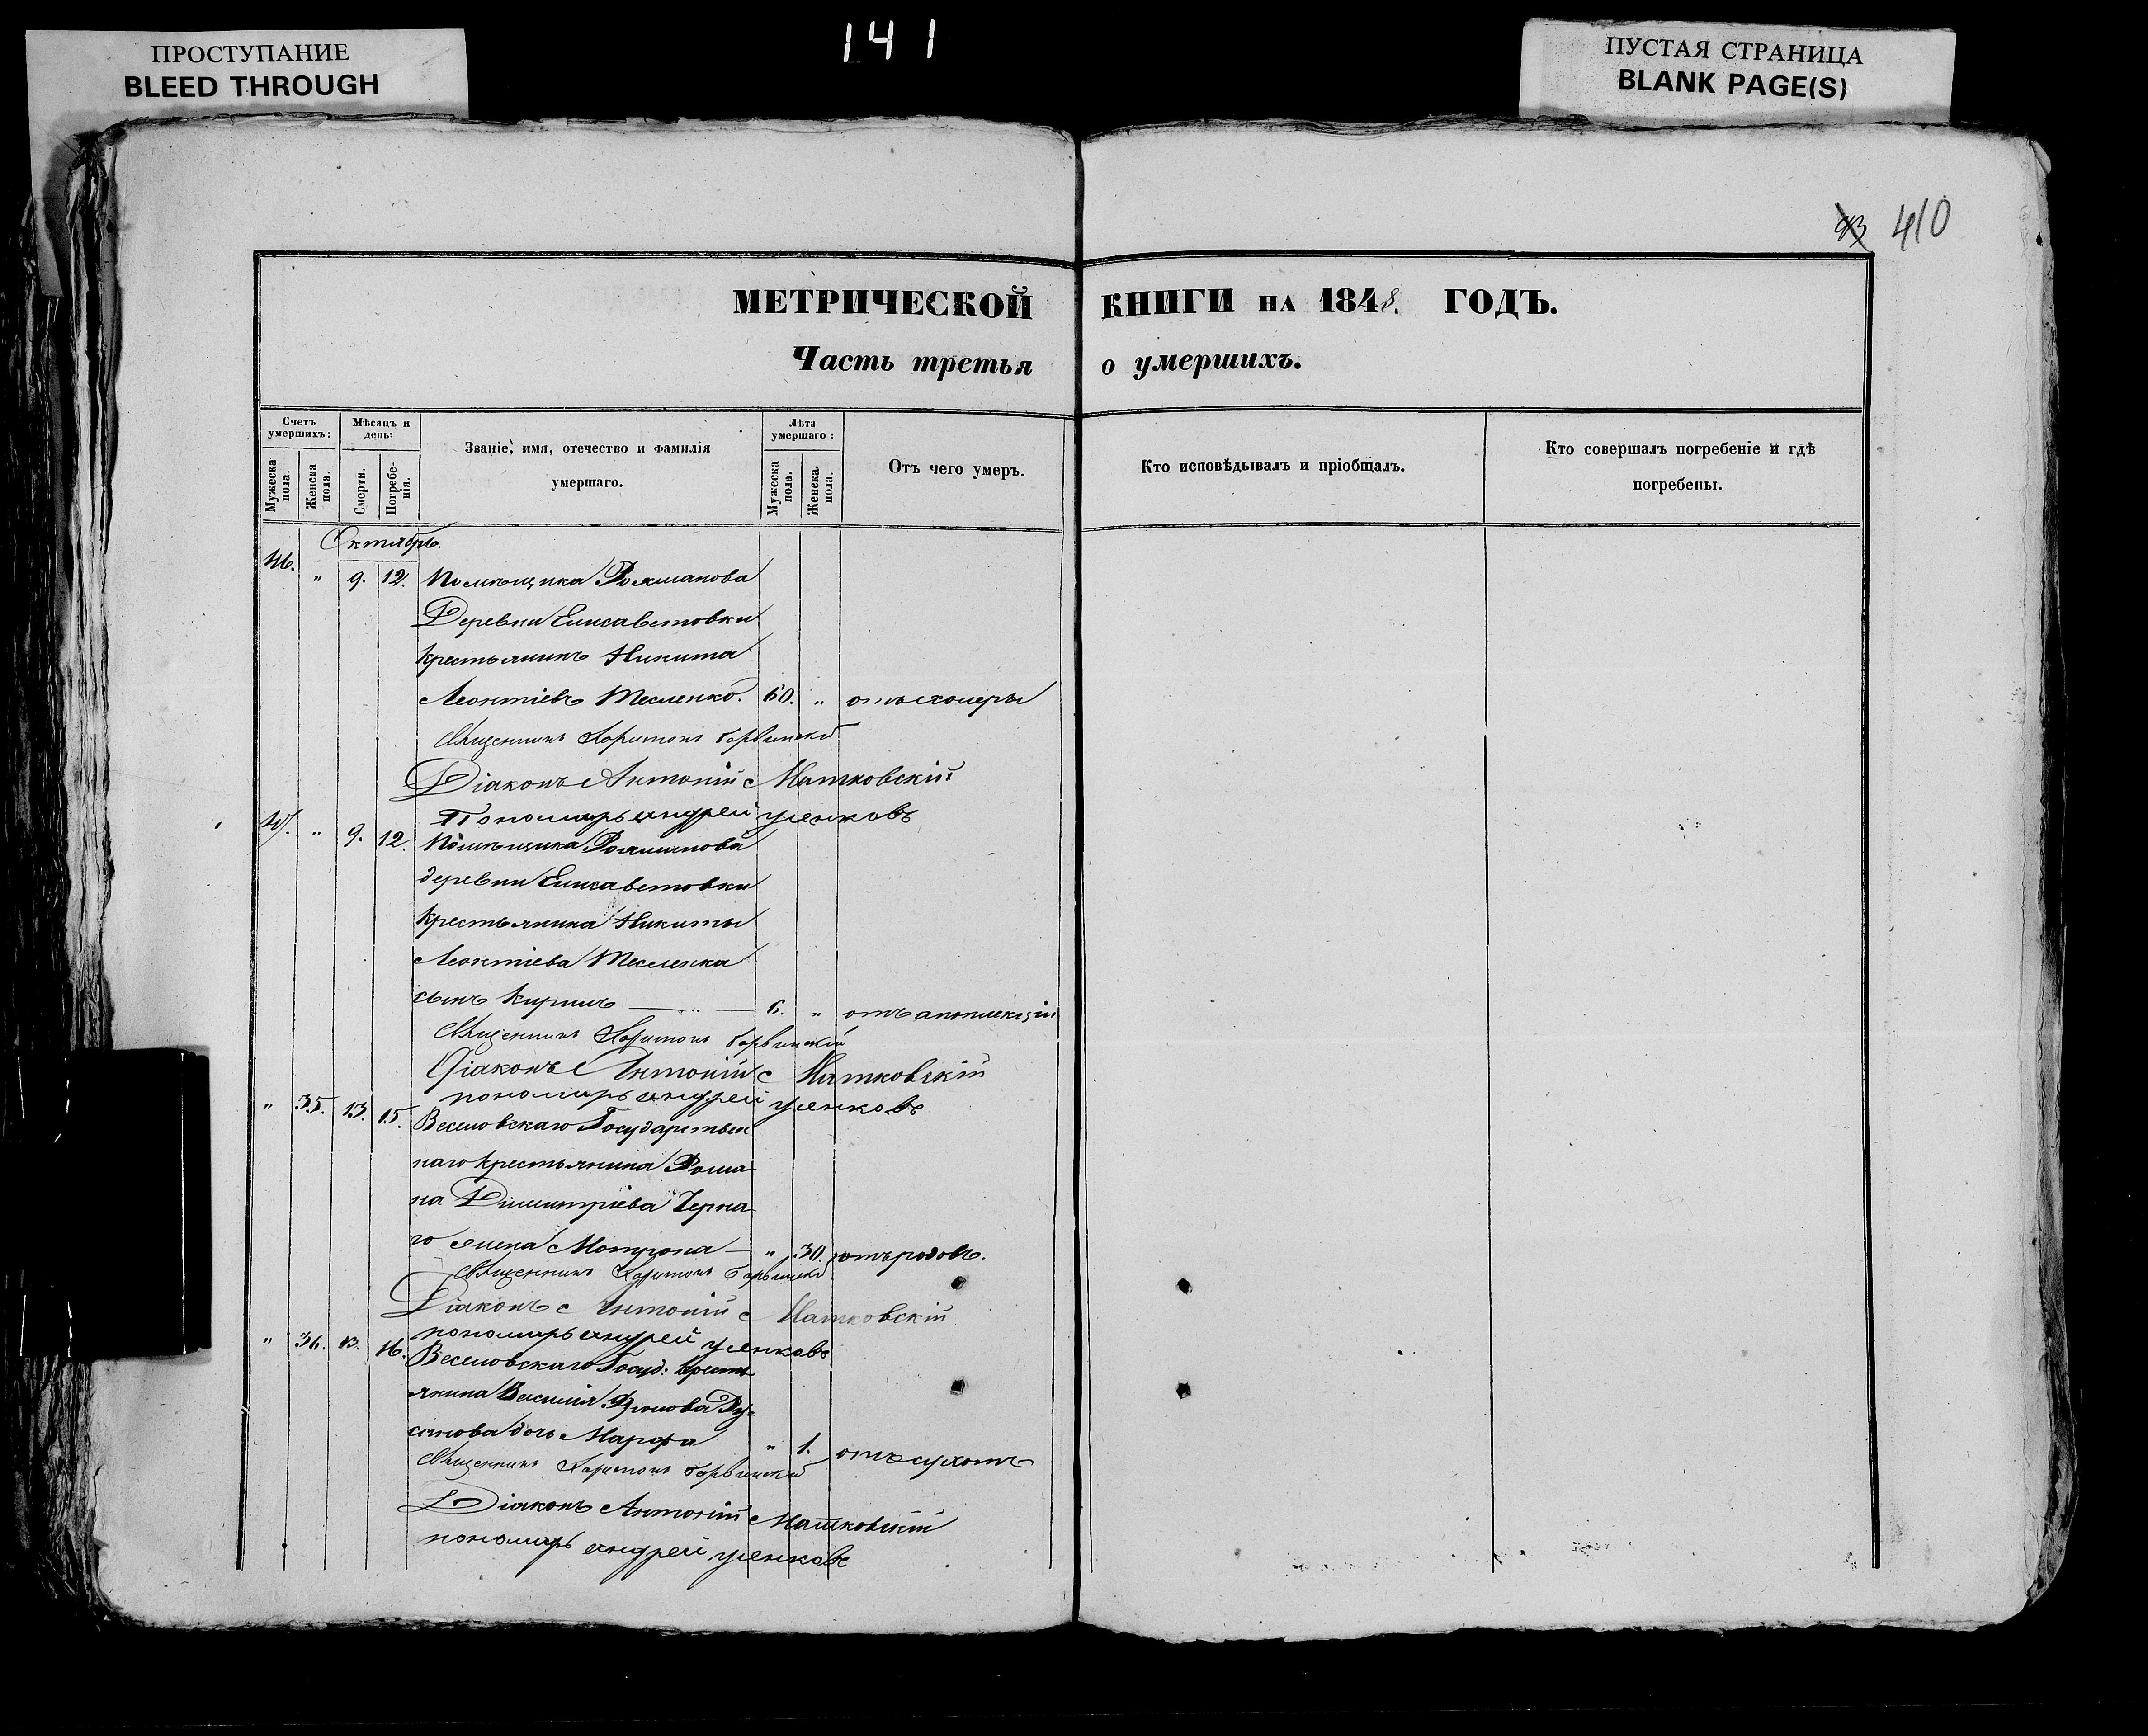 ПРОСТУПАНИЕ
BLEED THROUGH
141
ПУСТАЯ СТРАНИЦА
BLANK PAGE(S)
410
МЕТРИЧЕСКОЙ КНИГИ НА 1848. ГОДЪ.
Часть третья о умершихъ.
Счетъ умершихъ:
Мужеска пола.
Женска пола.
Мѣсяцъ и день:
Смерти.
Погребенія.
Званіе, имя, отечество и фамилія
умершаго.
Лѣта умершаго:
Мужеска пола.
Женска пола.
Отъ чего умеръ.
Кто исповѣдывалъ и пріобщалъ.
Кто совершалъ погребеніе и гдѣ
погребены.
Октябрь.
46. " 9. 12. Помѣщика
Деревни Елисаветовки
крестьянинъ Никита
Леонтіевъ Тесленко. 60. " отъ холеры
Священникъ Харитонъ
Діаконъ Антоній Матковскій
Пономарь Андрей
47. " 9. 12. Помѣщика
деревни Елисаветовки
крестьянина Никиты
Леонтіева Тесленка
сынъ Кирилъ 6. " отъ апоплекціи
Священникъ Харитонъ
Діаконъ Антоній Матковскій
пономарь андрей
" 35. 13. 15. Веселовскаго Государствен
наго крестьянина Рома
на Димитріева Черна
го жена Мотрона " 30. отъ родовъ.
Священникъ Харитонъ
Діаконъ Антоній Матковскій
пономарь андрей
" 36. 13. 16. Веселовскаго Госуд: кресть
янина Василія Ру=
санова дочь Марфа " 1. отъ сухотъ
Священникъ Харитонъ
Діаконъ Антоній Матковскій
пономарь андрей